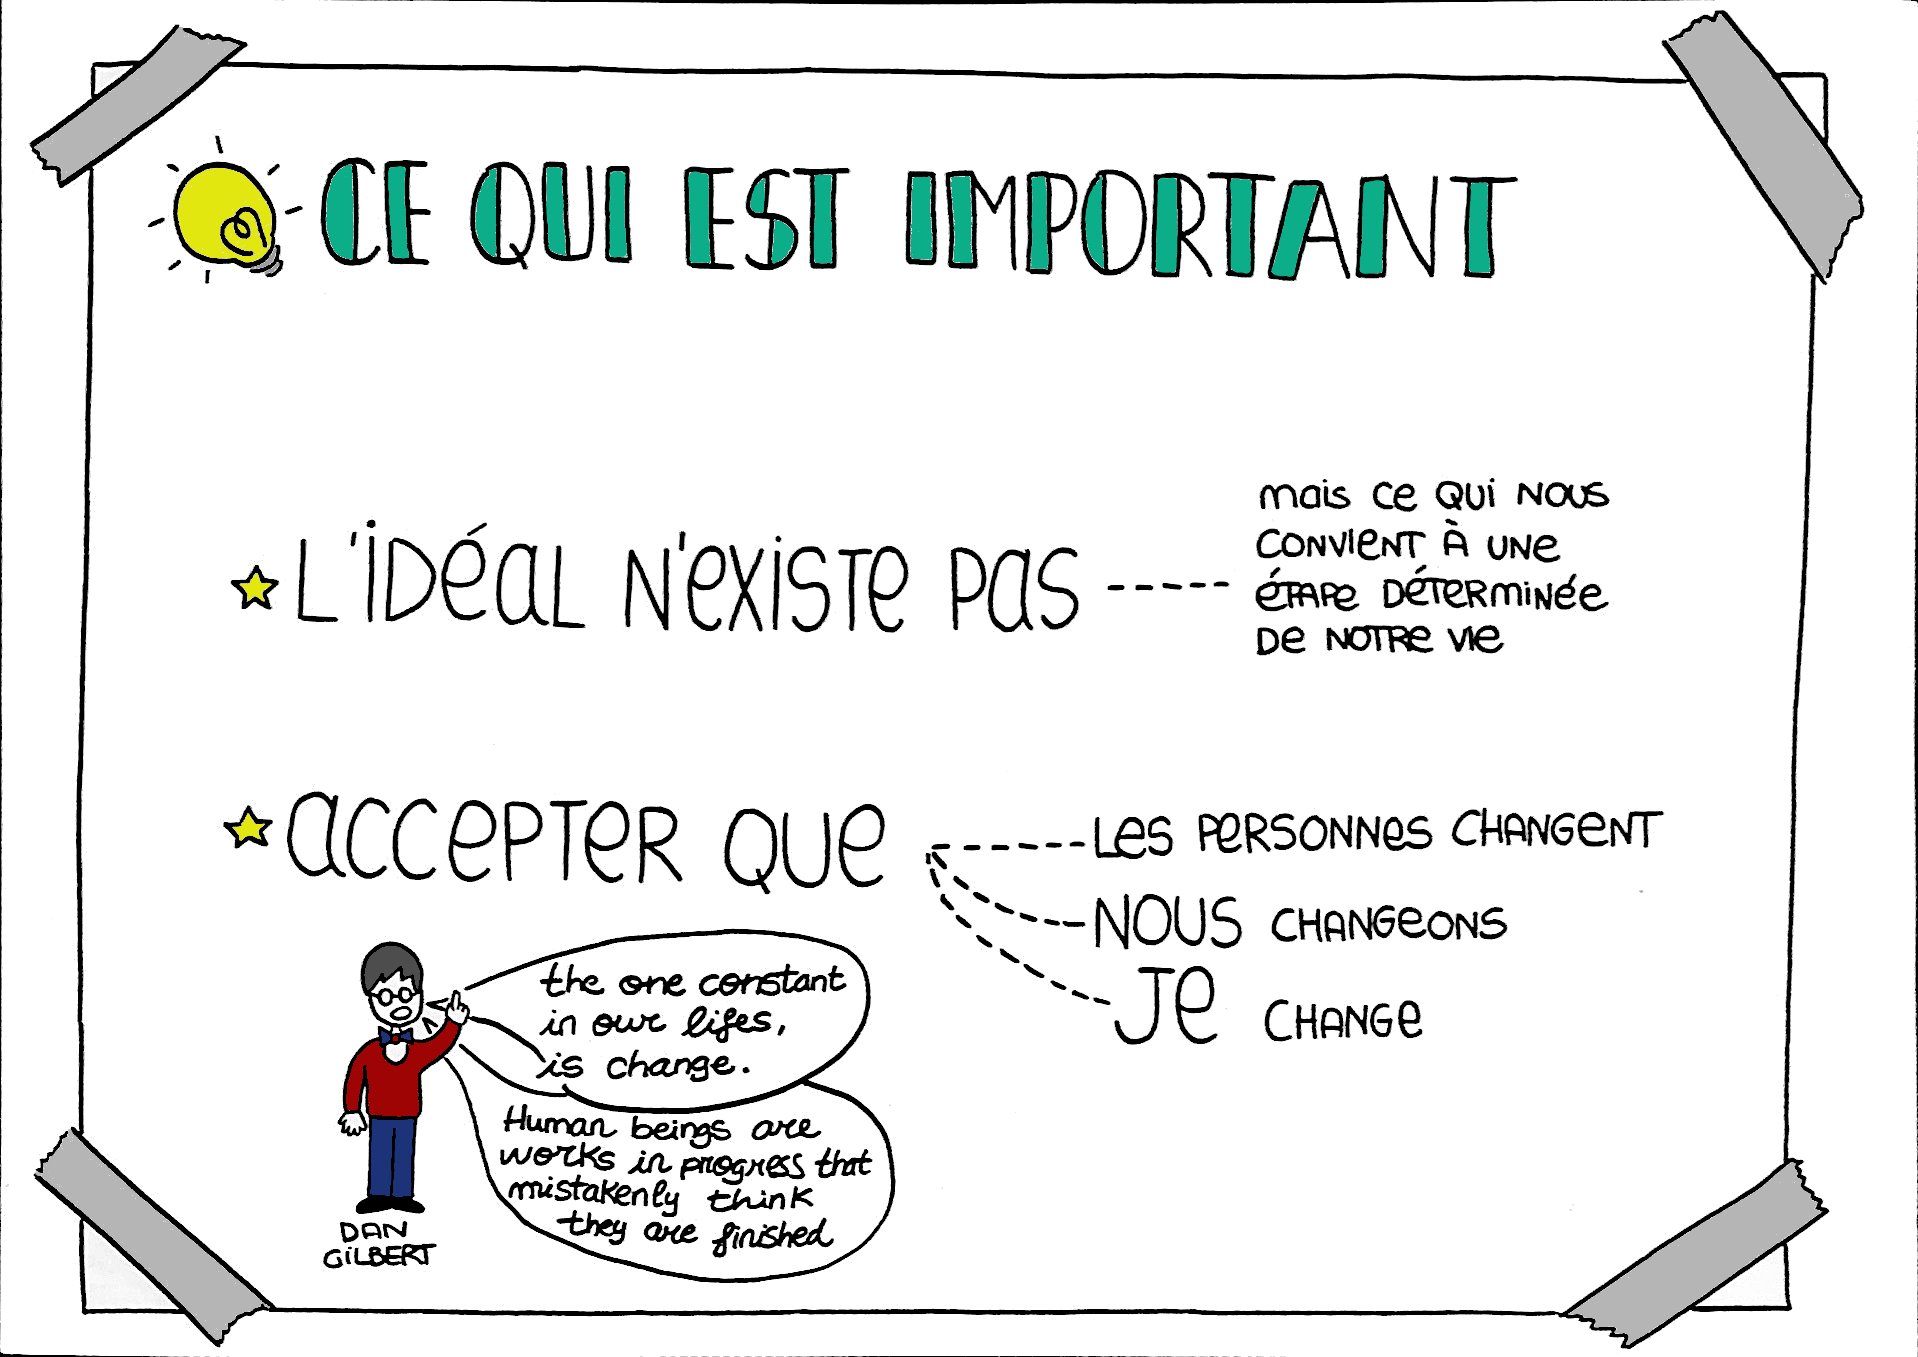 CE QUI EST IMPORTANT
L'IDÉAL N'EXISTE PAS
mais ce qui nous
convient à une
étape déterminée
de notre vie
ACCEPTER QUE
LES PERSONNES CHANGENT
NOUS CHANGEONS
JE CHANGE
the one constant
in our lifes,
is change.
Human beings are
works in progress that
mistakenly think
they are finished
DAN
GILBERT